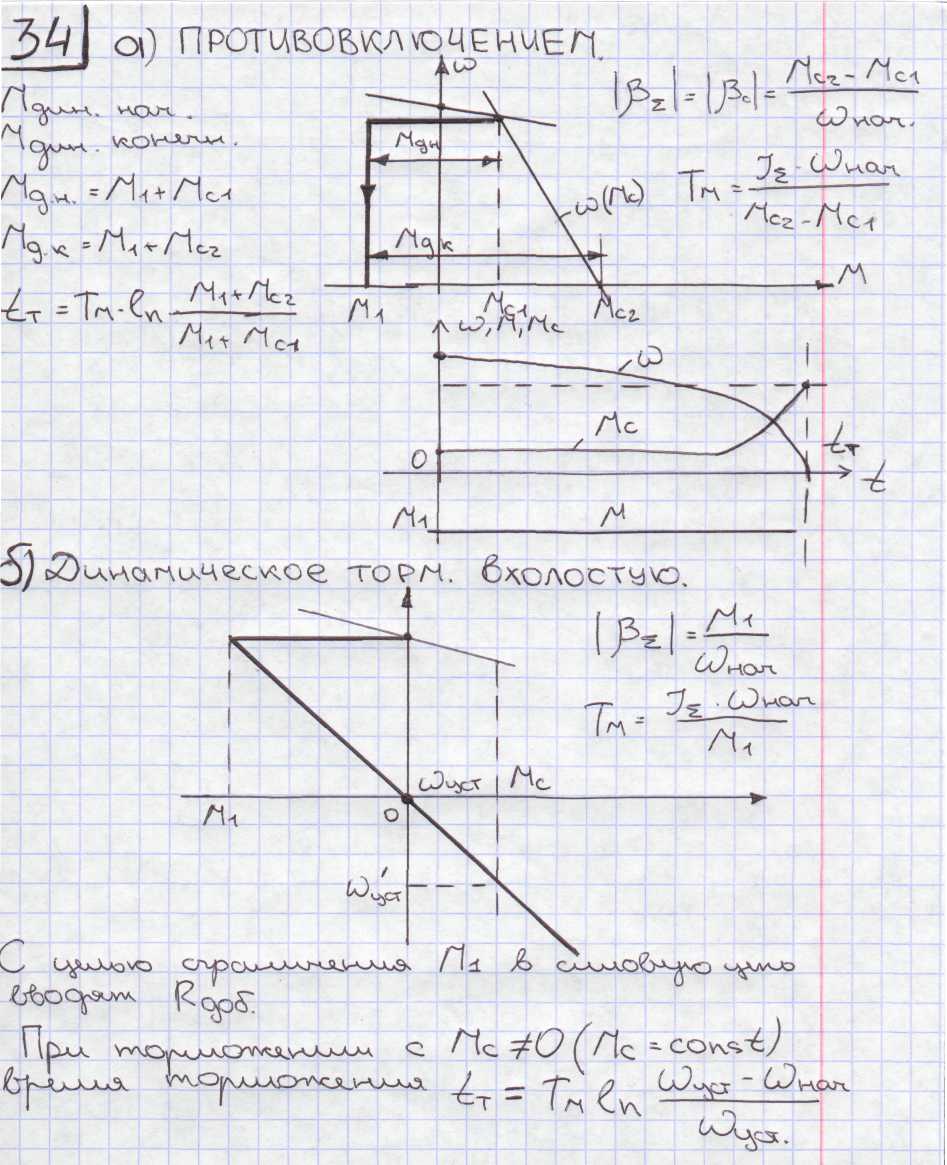 34 а) ПРОТИВОВКЛЮЧЕНИЕМ.
Mдин. нач.
Mдин. конечн.
Mд.н. = M1 + Mc1
Mд.к = M1 + Mc2
tт = Tм · ln (M1 + Mc2) / (M1 + Mc1)
ω
Mдн
ω(Mc)
Mдк
M1
Mc1
Mc2
M
|βΣ| = |βc| = (Mc2 - Mc1) / ωнач.
Tм = (JΣ · ωнач) / (Mc2 - Mc1)
ω, M, Mc
ω
Mc
0
tт
t
M1
M
б) Динамическое торм. вхолостую.
|βΣ| = M1 / ωнач
Tм = (JΣ · ωнач) / M1
ωуст
Mc
M1
0
ω'уст
С целью ограничения M1 в силовую цепь
вводят Rдоб.
При торможении с Mc ≠ 0 (Mc = const)
время торможения tт = Tм ln (ωуст - ωнач) / ωуст.